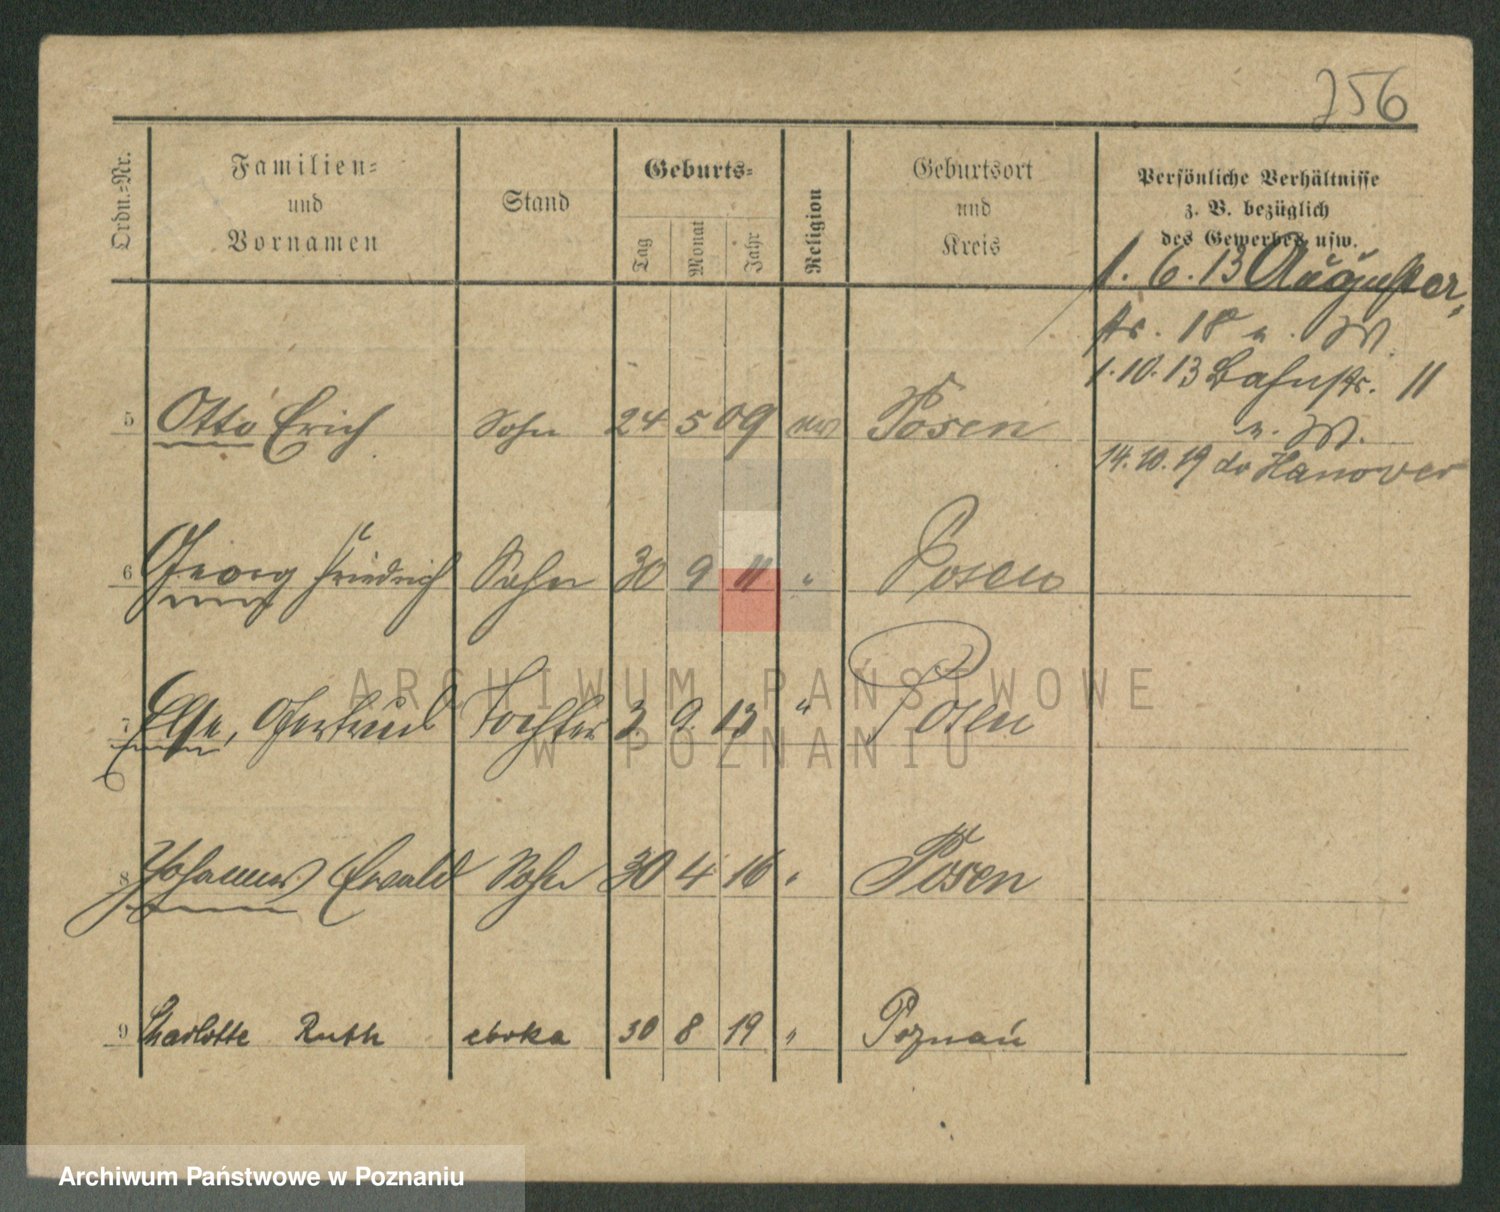 256
Ordn.-Nr.
Familien-
und
Vornamen
Stand
Geburts-
Tag
Monat
Jahr
Religion
Geburtsort
und
Kreis
Persönliche Verhältnisse
z. B. bezüglich
des Gewerbes usw.
1. 6. 13 Augustar
str. 18 n. W.
1.10.13 Bahnstr. 11
n. W.
14.10.19 do Hanover
5 Otto Erich Sohn 24 5 09 Posen
6 Georg Friedrich Sohn 30 9 11 " Posen
7 Else, Gertrud Tochter 3. 9. 13 " Posen
8 Johannes Ewald Sohn 30 4 16 " Posen
9 Charlotte Ruth córka 30 8 19 " Poznań
ARCHIWUM PAŃSTWOWE
W POZNANIU
Archiwum Państwowe w Poznaniu